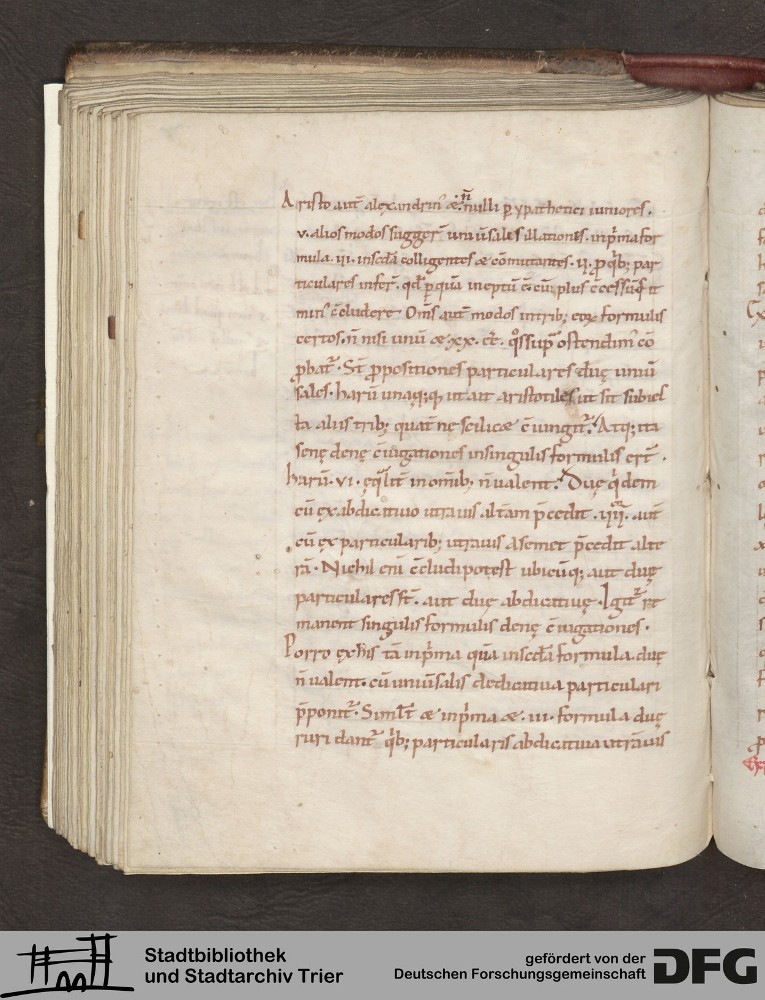 Aristo aut̄ alexandrin' & n̄nulli p̲ypathetici iuniores.
v. alios modos sugger̄ uniūsales illationes. inp̄ma for
mula. iii. inscd̄a colligentes & cōmutantes. ii. p̱ q̄b; par
ticulares infer̄. qd̄ p̲quā ineptū ē. cū plus
Om̄s aut̄ modos intrib; eoꝝ formulis
certos. n̄ nisi unū & xx. supᷓ ostendim' cō
p̱bat᷑. St̄ p̱positiones particulares duę uniū
sales. harū unaq;q; ut ait aristotiles ut sit subiec
ta aliis trib; quat̄ ne scilic& c̄iungit᷑. Atq; ita
senę denę c̄iugationes insingulis formulis er̄t.
harū. vi. ęq̄lit̄ in om̄ib; n̄ualent. Duę q̇dem
cū ex abdicatiuo utrauis alt̄am p̄cedit. iiii. aut̄
cū ex particularib; utrauis a semet p̄cedit alte
rā. Nichil eni c̄cludi potest ubicūq; aut duę
particulares st̄. aut duę abdicatiuę. Igit᷑ re
manent singulis formulis denę c̄iugationes.
Porro ex his tā inp̄ma quā inscd̄a formula duę
n̄ualent. cū uniūsalis dedicatiua particulari
p̄ponit᷑. Simil̄t & inp̄ma & .iii. formula duę
rursū dant᷑ q̄b; particularis abdicatiua utrāuis
Stadtbibliothek
und Stadtarchiv Trier
gefördert von der
Deutschen Forschungsgemeinschaft
DFG